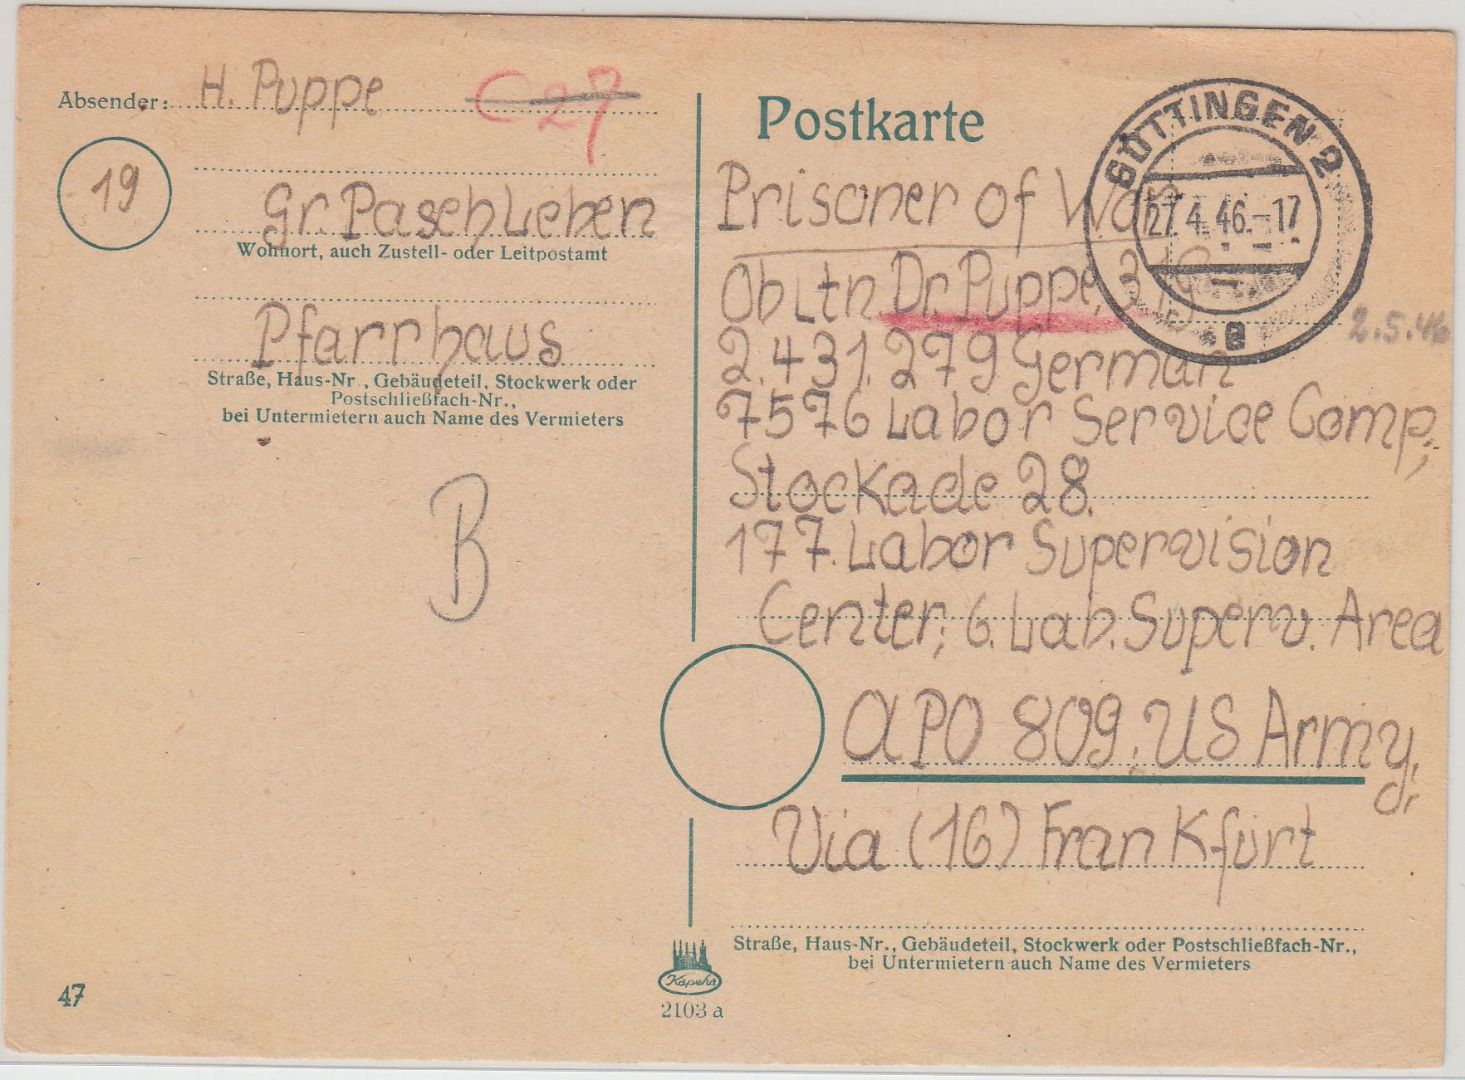 Absender: H. Puppe C27
19
Gr. Paschleben
Wohnort, auch Zustell- oder Leitpostamt
Pfarrhaus
Straße, Haus-Nr., Gebäudeteil, Stockwerk oder
Postschließfach-Nr.,
bei Untermietern auch Name des Vermieters
B
47
Postkarte
GÖTTINGEN 2
27.4.46.-17
a
Prisoner of War
Obltn. Dr. Puppe, 31G
2.5.46
2.431.279 German
7576 Labor Service Comp,;
Stockade 28.
177. Labor Supervision
Center; 6. Lab. Superv. Area
APO 809; US Army,
Via (16) Frankfurt
Straße, Haus-Nr., Gebäudeteil, Stockwerk oder Postschließfach-Nr.,
bei Untermietern auch Name des Vermieters
Kapeha
2103 a